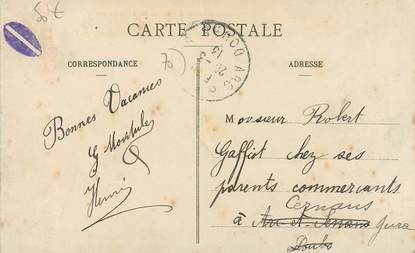 50 €
CARTE POSTALE
CORRESPONDANCE
ADRESSE
70
Bonnes Vacances
Henri
Monsieur Robert
Gaffiot chez ses
parents commerçants
Cernans
à Arc-et-Senans Jura
Doubs